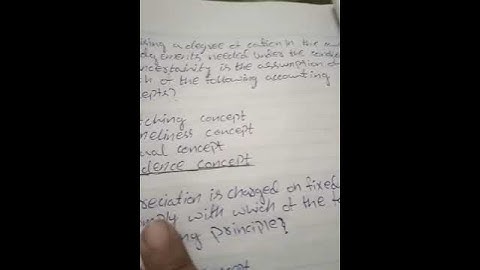 ising a degree of caution in the
needed under the
uncertainity is the assumption of
of the following accounting
epts?
tching concept
meliness concept
ual concept
dence concept
reciation is charged on fixed
mply with which of the
ing principle?